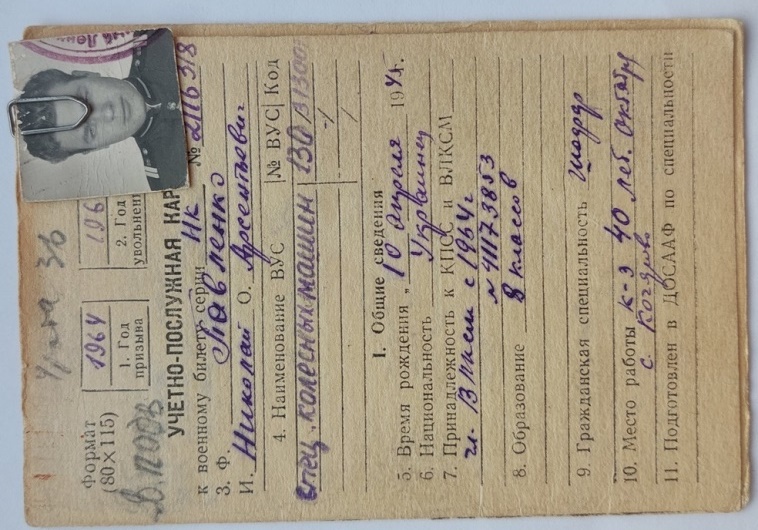 Формат
(80×115)
1964
1. Год
призыва
196
2. Год
увольнен
УЧЕТНО-ПОСЛУЖНАЯ КАР
к военному билету серии НК № 2116318
3. Ф. Павленко
И. Николай О. Арсентьевич
4. Наименование ВУС № ВУС Код
спец. колесных машин 130
I. Общие сведения
5. Время рождения „ 10 апреля 194
6. Национальность Украинец
7. Принадлежность к КПСС и ВЛКСМ
чл. ВЛКСМ с 1964 г.
№ 41173853
8. Образование 8 классов
9. Гражданская специальность шофер
10. Место работы к-з 40 лет. Октября
с.
11. Подготовлен в ДОСААФ по специальности